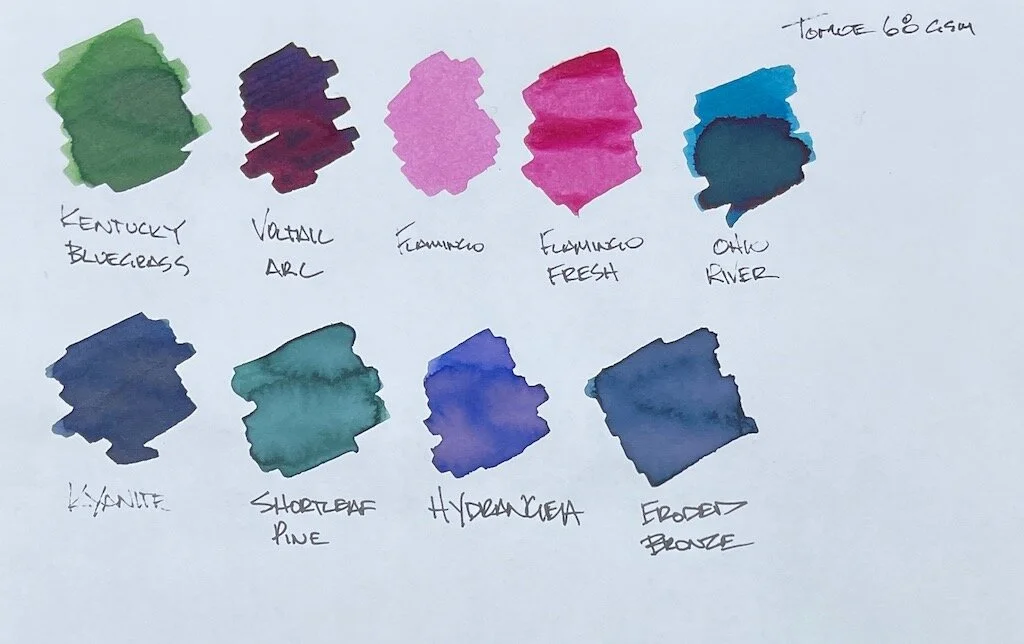 TOMOE 68 GSM
KENTUCKY
BLUEGRASS
VOLTAIC
ARC
FLAMINGO
FLAMINGO
FRESH
OHIO
RIVER
KYANITE
SHORTLEAF
PINE
HYDRANGEA
ERODED
BRONZE